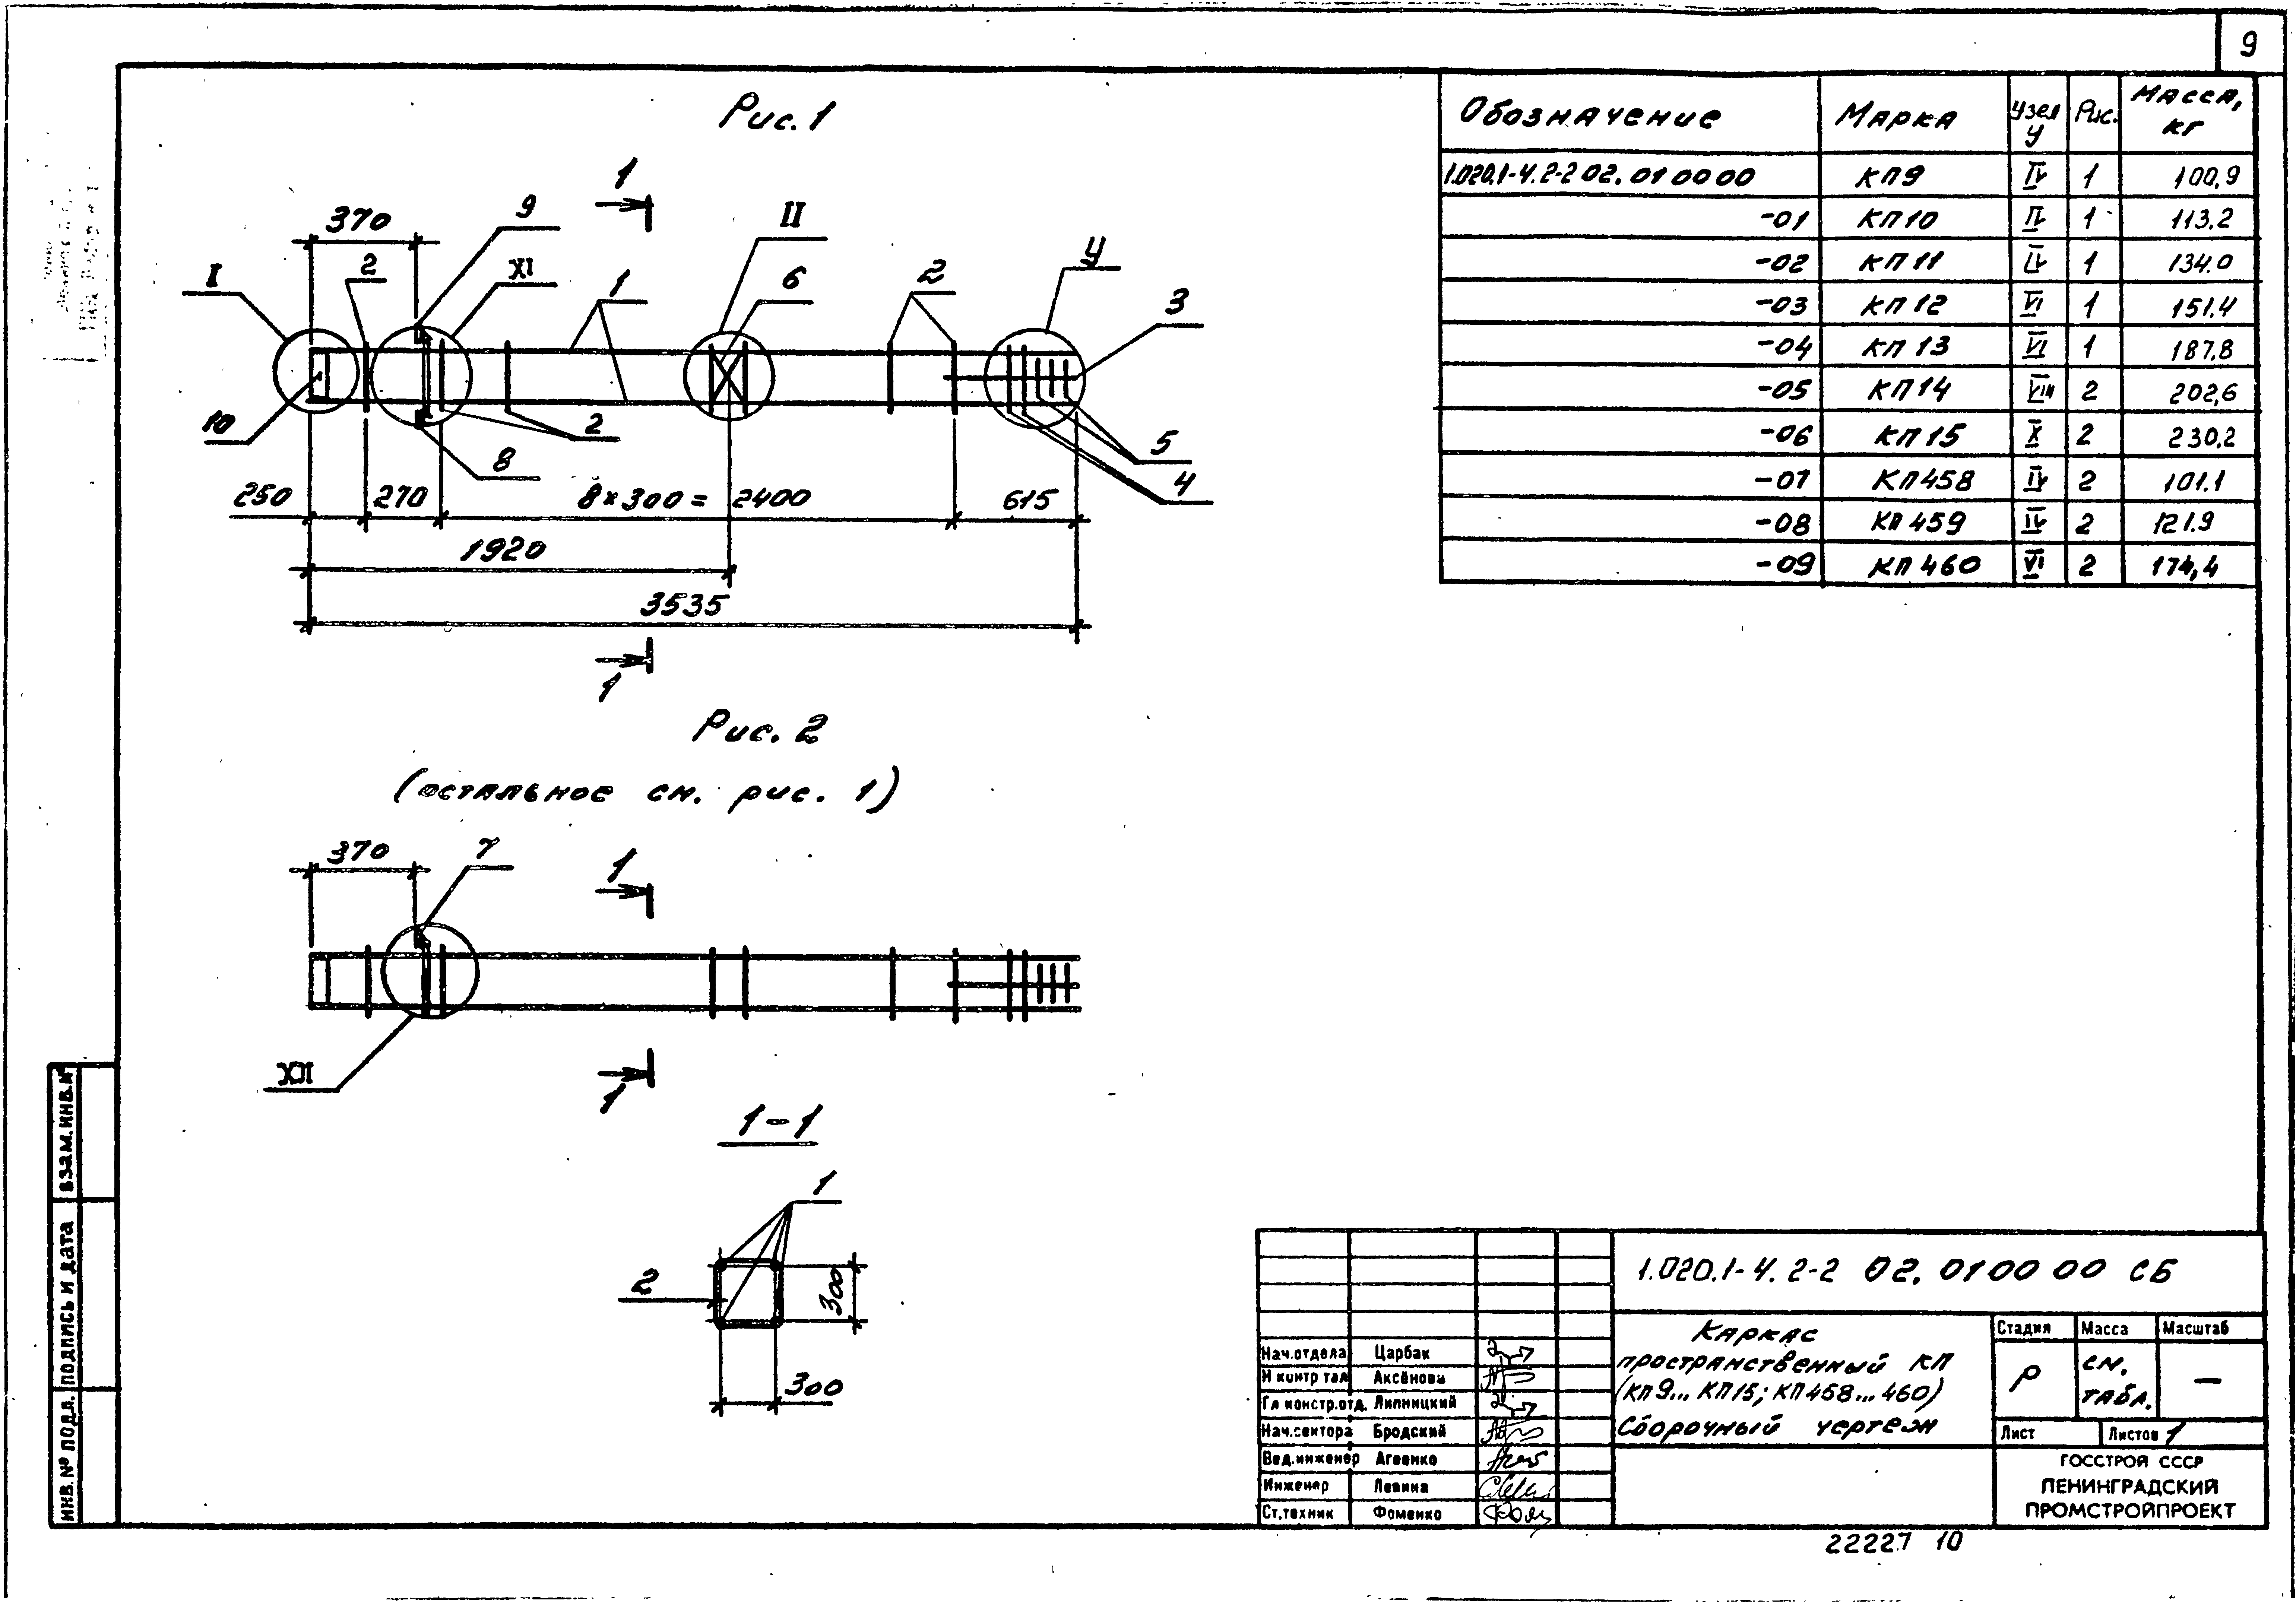 9
Рис. 1
1
370
9
II
I
2
XI
1
6
2
У
3
10
2
8
5
4
250
270
8×300 = 2400
615
1920
3535
1
Рис. 2
(остальное см. рис. 1)
370
7
1
XII
1
1-1
1
2
300
300
Обозначение Марка Узел У Рис. Масса, кг
1.020.1-4.2-2 02.01 00 00 КП9 IV 1 100,9
-01 КП10 IV 1 113.2
-02 КП11 IV 1 134.0
-03 КП12 VI 1 151.4
-04 КП13 VI 1 187.8
-05 КП14 VIII 2 202,6
-06 КП15 X 2 230.2
-07 КП458 IV 2 101.1
-08 КП459 IV 2 121.9
-09 КП460 VI 2 174,4
1.020.1-4.2-2 02.01 00 00 СБ
Каркас
пространственный КП
(КП9... КП15; КП458... 460)
Сборочный чертеж
Стадия Масса Масштаб
Р см. табл. —
Лист Листов 1
ГОССТРОЙ СССР
ЛЕНИНГРАДСКИЙ
ПРОМСТРОЙПРОЕКТ
Нач.отдела Царбак
Н контр тал Аксёнова
Гл констр.отд. Липницкий
Нач.сектора Бродский
Вед.инженер Агеенко
Инженер Левина
Ст.техник Фоменко
ИНВ.№ ПОДЛ. ПОДПИСЬ И ДАТА ВЗАМ.ИНВ.№
22227 10